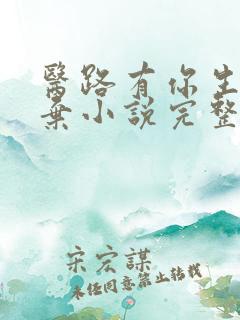 醫路有你生
棄小說完整
宋宏謀
未經同意禁止轉載